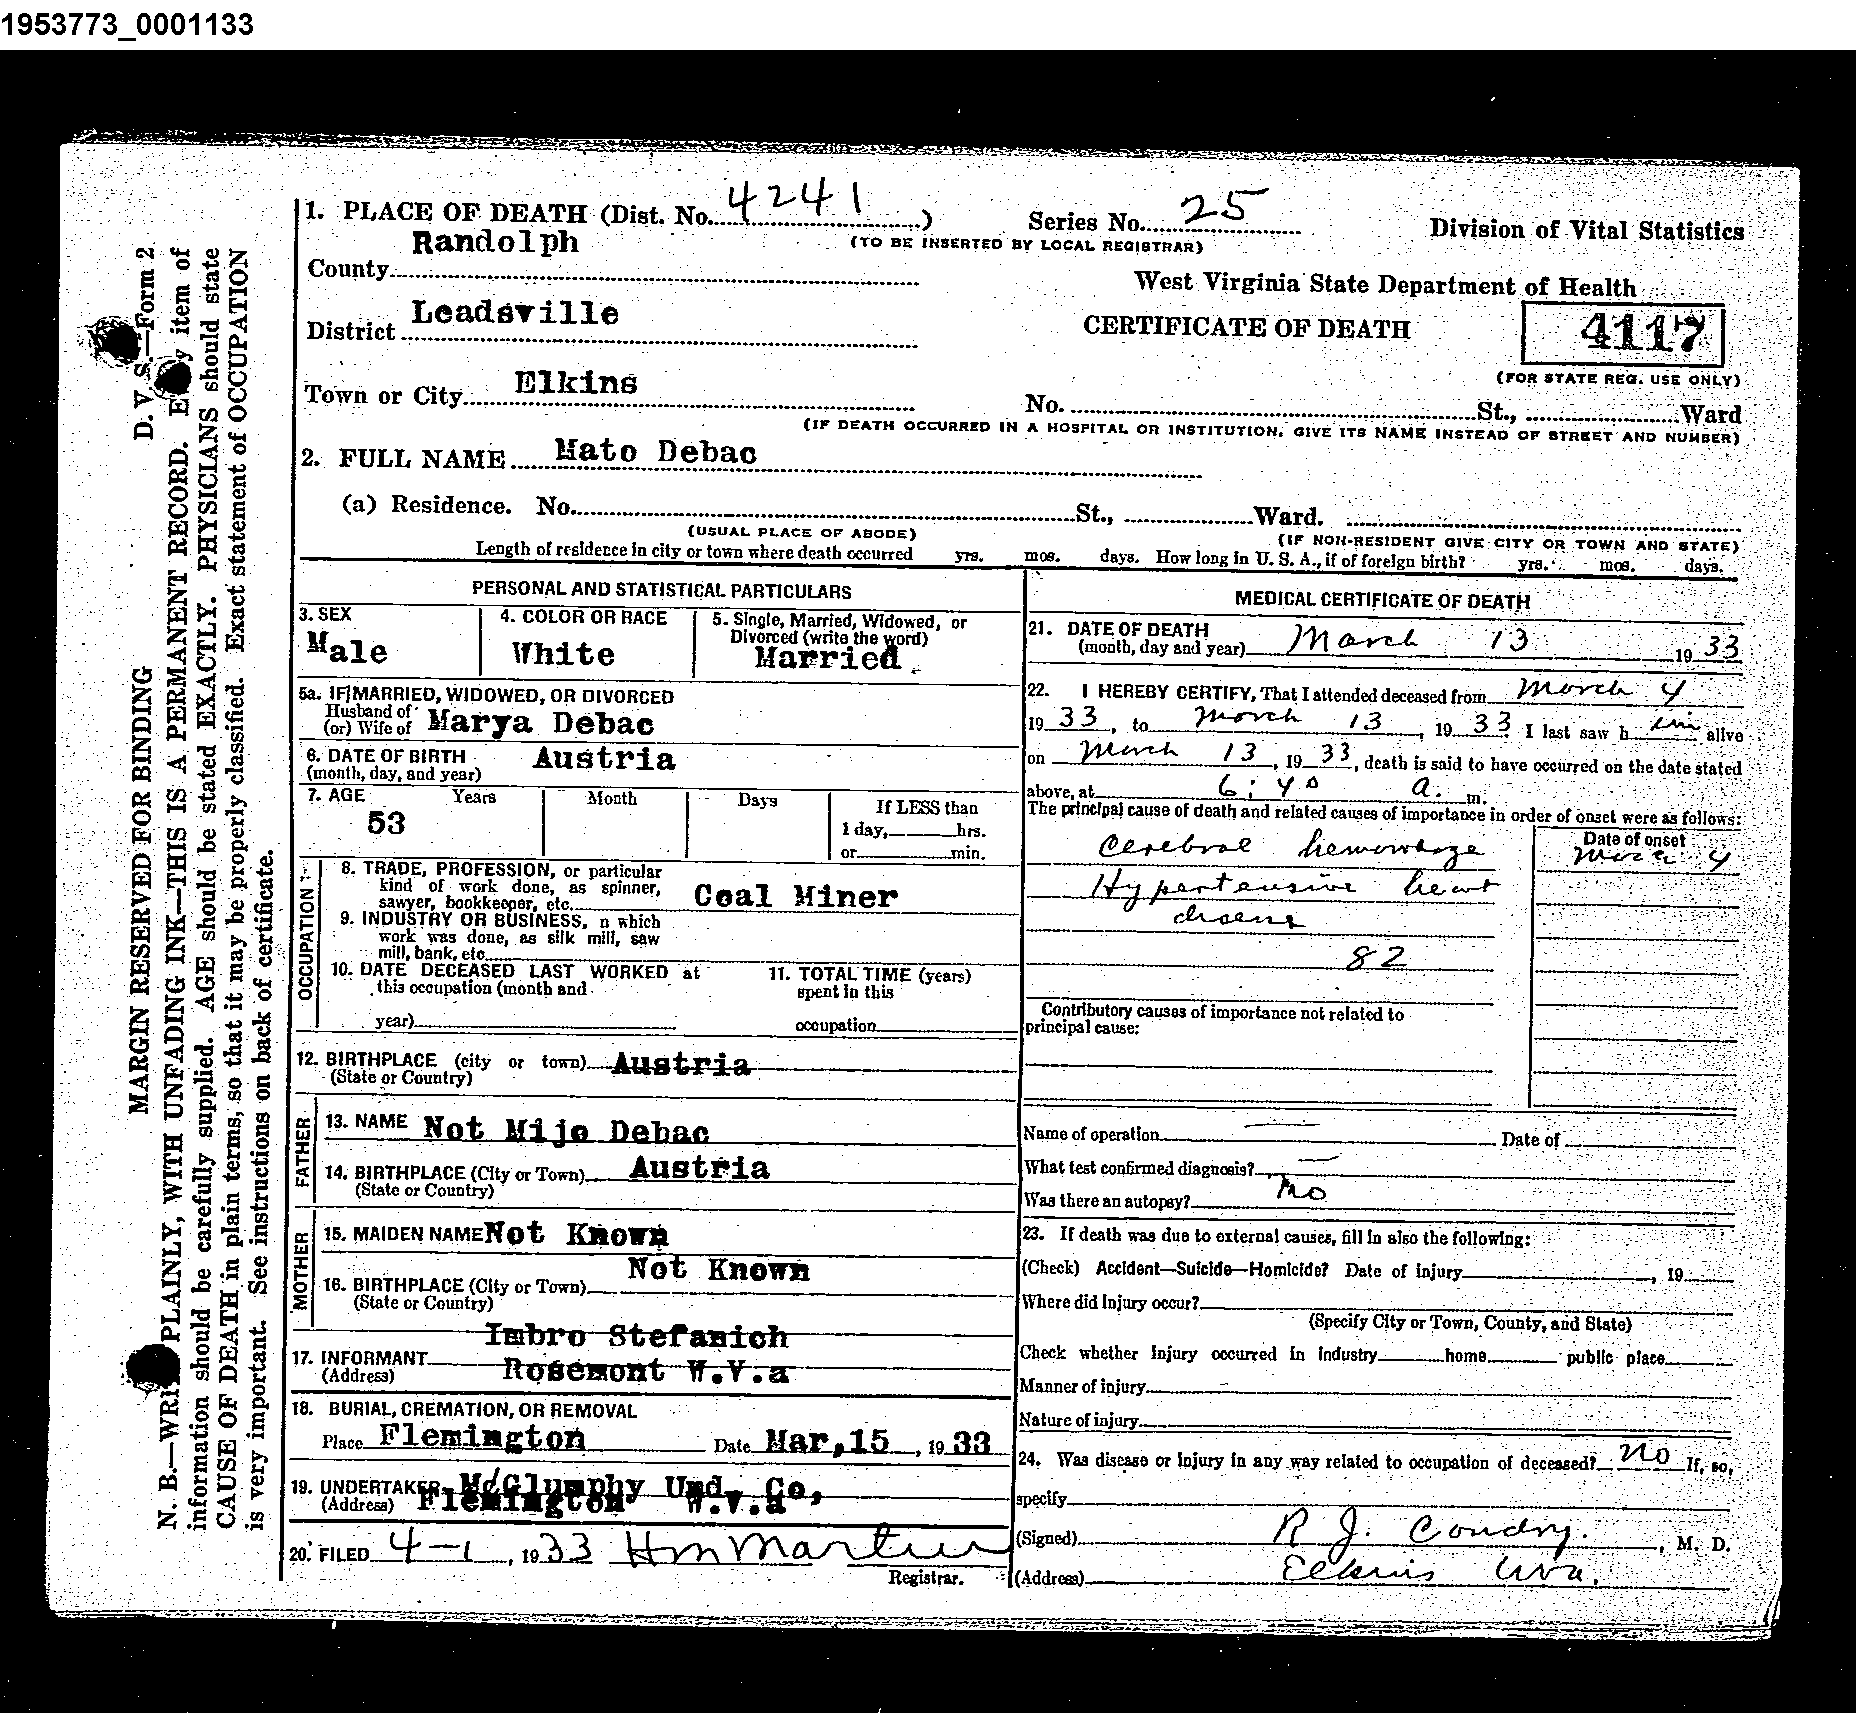 1953773_0001133
1. PLACE OF DEATH (Dist. No. 4241 )
Series No. 25
(TO BE INSERTED BY LOCAL REGISTRAR)
Division of Vital Statistics
County Randolph
West Virginia State Department of Health
District Leadsville
CERTIFICATE OF DEATH
4117
(FOR STATE REG. USE ONLY)
Town or City Elkins
No. St., Ward
(IF DEATH OCCURRED IN A HOSPITAL OR INSTITUTION, GIVE ITS NAME INSTEAD OF STREET AND NUMBER)
2. FULL NAME Mato Debac
(a) Residence. No. St., Ward.
(USUAL PLACE OF ABODE)
(IF NON-RESIDENT GIVE CITY OR TOWN AND STATE)
Length of residence in city or town where death occurred yrs. mos. days. How long in U. S. A., if of foreign birth? yrs. mos. days.
PERSONAL AND STATISTICAL PARTICULARS
3. SEX
Male
4. COLOR OR RACE
White
5. Single, Married, Widowed, or
Divorced (write the word)
Married
5a. IF MARRIED, WIDOWED, OR DIVORCED
Husband of
(or) Wife of Marya Debac
6. DATE OF BIRTH Austria
(month, day, and year)
7. AGE Years Month Days
53
If LESS than
1 day, hrs.
or min.
OCCUPATION
8. TRADE, PROFESSION, or particular
kind of work done, as spinner,
sawyer, bookkeeper, etc. Coal Miner
9. INDUSTRY OR BUSINESS, n which
work was done, as silk mill, saw
mill, bank, etc.
10. DATE DECEASED LAST WORKED at
this occupation (month and
year)
11. TOTAL TIME (years)
spent in this
occupation
12. BIRTHPLACE (city or town) Austria
(State or Country)
FATHER
13. NAME Not Mijo Debac
14. BIRTHPLACE (City or Town) Austria
(State or Country)
MOTHER
15. MAIDEN NAME Not Known
16. BIRTHPLACE (City or Town) Not Known
(State or Country)
Imbro Stefanich
17. INFORMANT
(Address) Rosemont W.V.a
18. BURIAL, CREMATION, OR REMOVAL
Place Flemington Date Mar, 15, 1933
19. UNDERTAKER McGlumphy Und. Co,
(Address) Flemington W.V.a
20. FILED 4-1, 1933 HM Martin
Registrar.
MEDICAL CERTIFICATE OF DEATH
21. DATE OF DEATH
(month, day and year) March 13 1933
22. I HEREBY CERTIFY, That I attended deceased from March 4
1933, to March 13, 1933 I last saw him alive
on March 13, 1933, death is said to have occurred on the date stated
above, at 6:40 a. m.
The principal cause of death and related causes of importance in order of onset were as follows:
Date of onset
Cerebral hemorrhage March 4
Hypertensive heart
disease
82
Contributory causes of importance not related to
principal cause:
Name of operation — Date of
What test confirmed diagnosis? —
Was there an autopsy? no
23. If death was due to external causes, fill in also the following:
(Check) Accident—Suicide—Homicide? Date of injury , 19
Where did Injury occur?
(Specify City or Town, County, and State)
Check whether Injury occurred in industry home public place
Manner of injury
Nature of injury
24. Was disease or injury in any way related to occupation of deceased? no If, so,
specify
(Signed) R J. Condry. , M. D.
(Address) Elkins Wva.
D. V. S.—Form 2
MARGIN RESERVED FOR BINDING
N. B.—WRITE PLAINLY, WITH UNFADING INK—THIS IS A PERMANENT RECORD. Every item of
information should be carefully supplied. AGE should be stated EXACTLY. PHYSICIANS should state
CAUSE OF DEATH in plain terms, so that it may be properly classified. Exact statement of OCCUPATION
is very important. See instructions on back of certificate.